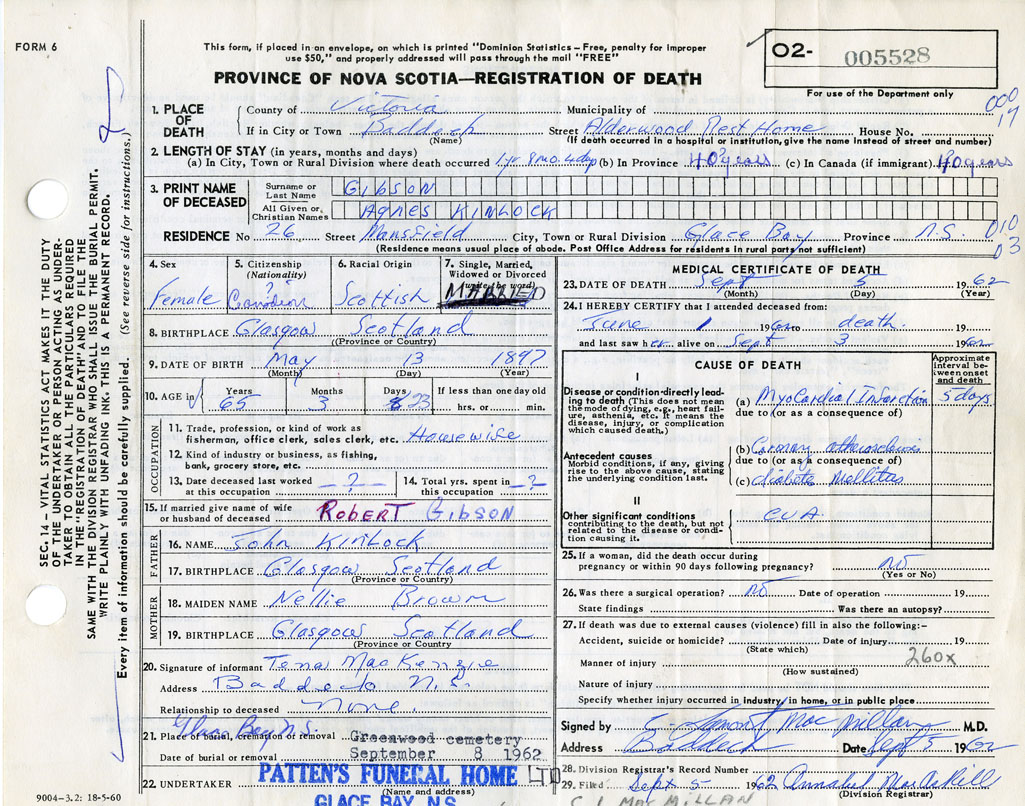 FORM 6
This form, if placed in an envelope, on which is printed "Dominion Statistics – Free, penalty for improper
use $50," and properly addressed will pass through the mail "FREE"
PROVINCE OF NOVA SCOTIA—REGISTRATION OF DEATH
02- 005528
For use of the Department only
000
19
1. PLACE OF DEATH
County of Victoria Municipality of
If in City or Town Baddeck Street Alderwood Rest Home House No.
(Name) (If death occurred in a hospital or institution, give the name instead of street and number)
2. LENGTH OF STAY (in years, months and days)
(a) In City, Town or Rural Division where death occurred 1 yr 8 mo. 4 dy (b) In Province 40? years (c) In Canada (if immigrant) 40 years
3. PRINT NAME OF DECEASED
Surname or Last Name GIBSON
All Given or Christian Names AGNES KINLOCK
RESIDENCE No 26 Street Mansfield City, Town or Rural Division Glace Bay Province N.S.
010
03
(Residence means usual place of abode. Post Office Address for residents in rural parts not sufficient)
4. Sex Female
5. Citizenship (Nationality) ? Canadian
6. Racial Origin Scottish
7. Single, Married, Widowed or Divorced (write the word) MARRIED
8. BIRTHPLACE Glasgow Scotland
(Province or Country)
9. DATE OF BIRTH May 13 1897
(Month) (Day) (Year)
10. AGE in Years 65 Months 3 Days 23 If less than one day old
hrs. or min.
OCCUPATION
11. Trade, profession, or kind of work as
fisherman, office clerk, sales clerk, etc. Housewife
12. Kind of industry or business, as fishing,
bank, grocery store, etc.
13. Date deceased last worked
at this occupation – ? –
14. Total yrs. spent in
this occupation – ? –
15. If married give name of wife
or husband of deceased ROBERT GIBSON
FATHER
16. NAME John Kinlock
17. BIRTHPLACE Glasgow Scotland
(Province or Country)
MOTHER
18. MAIDEN NAME Nellie Brown
19. BIRTHPLACE Glasgow Scotland
(Province or Country)
20. Signature of informant Tena MacKenzie
Address Baddeck N.S.
Relationship to deceased None.
Glace Bay N.S.
21. Place of burial, cremation or removal Greenwood cemetery
Date of burial or removal September 8 1962
22. UNDERTAKER PATTEN'S FUNERAL HOME LTD
(Name and address)
GLACE BAY, N.S.
9004–3.2: 18-5-60
MEDICAL CERTIFICATE OF DEATH
23. DATE OF DEATH Sept 5 1962
(Month) (Day) (Year)
24. I HEREBY CERTIFY that I attended deceased from:
June 1 1962 to death. 19
and last saw her alive on Sept 3 1962
CAUSE OF DEATH
Approximate interval between onset and death
I
Disease or condition directly leading to death (This does not mean the mode of dying, e.g., heart failure, asthenia, etc. It means the disease, injury, or complication which caused death.)
(a) Myocardial Infarction 5 days
due to (or as a consequence of)
Antecedent causes
Morbid conditions, if any, giving rise to the above cause, stating the underlying condition last.
(b) Coronary
due to (or as a consequence of)
(c) diabetes mellitus
II
Other significant conditions
contributing to the death, but not related to the disease or condition causing it.
CVA
25. If a woman, did the death occur during
pregnancy or within 90 days following pregnancy? No
(Yes or No)
26. Was there a surgical operation? No Date of operation 19
State findings Was there an autopsy?
27. If death was due to external causes (violence) fill in also the following:–
Accident, suicide or homicide? Date of injury 19
(State which)
260x
Manner of injury
(How sustained)
Nature of injury
Specify whether injury occurred in industry, in home, or in public place
Signed by C. Lamont MacMillan M.D.
Address Baddeck Date Sept 5 1962
28. Division Registrar's Record Number
29. Filed Sept 5 1962 Annabel
(Division Registrar)
C L MACMILLAN
SEC. 14 – VITAL STATISTICS ACT, MAKES IT THE DUTY
OF THE UNDERTAKER OR PERSON ACTING AS UNDER-
TAKER TO OBTAIN ALL THE PARTICULARS REQUIRED
IN THE "REGISTRATION OF DEATH" AND TO FILE THE
SAME WITH THE DIVISION REGISTRAR WHO SHALL ISSUE THE BURIAL PERMIT.
WRITE PLAINLY WITH UNFADING INK. THIS IS A PERMANENT RECORD.
Every item of information should be carefully supplied. (See reverse side for instructions.)